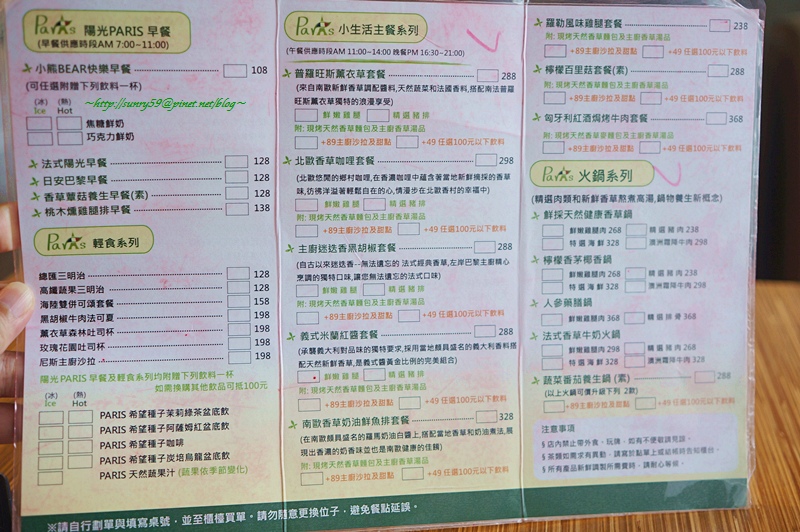 Paris 陽光PARIS 早餐
(早餐供應時段AM 7:00~11:00)
小熊BEAR快樂早餐 108
(可任選附贈下列飲料一杯)
(冰) (熱)
Ice Hot
焦糖鮮奶
巧克力鮮奶
~http://sunny59@pixnet.net/blog~
法式陽光早餐 128
日安巴黎早餐 128
香草蕈菇養生早餐(素) 128
桃木燻雞腿排早餐 138
Paris 輕食系列
總匯三明治 128
高纖蔬果三明治 128
海陸雙併可頌套餐 158
黑胡椒牛肉法可夏 198
薰衣草森林吐司杯 198
玫瑰花園吐司杯 198
尼斯主廚沙拉 198
陽光PARIS 早餐及輕食系列均附贈下列飲料一杯
如需換購其他飲品可抵100元
(冰) (熱)
Ice Hot
PARIS 希望種子茉莉綠茶盆底飲
PARIS 希望種子阿薩姆紅盆底飲
PARIS 希望種子咖啡
PARIS 希望種子炭培烏龍盆底飲
PARIS 天然蔬果汁 (蔬果依季節變化)
Paris 小生活主餐系列
(午餐供應時段AM 11:00~14:00 晚餐PM 16:30~21:00)
普羅旺斯薰衣草套餐 288
(來自南歐新鮮香草調配醬料,天然蔬菜和法國香料,搭配南法普羅
旺斯薰衣草獨特的浪漫享受)
鮮嫩雞腿 精選豬排
附: 現烤天然香草麵包及主廚香草湯品
+89主廚沙拉及甜點 +49 任選100元以下飲料
北歐香草咖哩套餐 298
(北歐悠閒的鄉村咖哩,在香濃咖哩中蘊含著當地新鮮摘採的香草
味,彷彿洋溢著輕鬆自在的心,情漫步在北歐香村的幸福中)
鮮嫩雞腿 精選豬排
附: 現烤天然香草麵包及主廚香草湯品
+89主廚沙拉及甜點 +49 任選100元以下飲料
主廚迷迭香黑胡椒套餐 288
(自古以來迷迭香--無法遺忘的 法式經典香草,左岸巴黎主廚精心
烹調的獨特口味,讓您無法遺忘的法式口味)
鮮嫩雞腿 精選豬排
附: 現烤天然香草麵包及主廚香草湯品
+89主廚沙拉及甜點 +49 任選100元以下飲料
義式米蘭紅醬套餐 288
(承襲義大利對品味的獨特要求,採用當地頗具盛名的義大利香料搭
配天然新鮮香草,是義式醬黃金比例的完美組合)
鮮嫩雞腿 精選豬排
附: 現烤天然香草麵包及主廚香草湯品
+89主廚沙拉及甜點 +49 任選100元以下飲料
南歐香草奶油鮮魚排套餐 328
(在南歐頗具盛名的羅馬奶油白醬上,搭配當地香草和奶油煮法,展
現出香濃的奶香味並也是南歐健康的佳餚)
附: 現烤天然香草麵包及主廚香草湯品
+89主廚沙拉及甜點 +49 任選100元以下飲料
羅勒風味雞腿套餐 238
附: 現烤天然香草麵包及主廚香草湯品
+89主廚沙拉及甜點 +49 任選100元以下飲料
檸檬百里菇套餐(素) 288
附: 現烤天然香草麵包及主廚香草湯品
+89主廚沙拉及甜點 +49 任選100元以下飲料
匈牙利紅酒焗烤牛肉套餐 368
附: 現烤天然香草麵包及主廚香草湯品
+89主廚沙拉及甜點 +49 任選100元以下飲料
Paris 火鍋系列
(精選肉類和新鮮香草熬煮高湯,鍋物養生新概念)
鮮採天然健康香草鍋
鮮嫩雞腿肉 268 精選豬肉 238
特選海鮮 328 澳洲霜降牛肉 298
檸檬香茅椰香鍋
鮮嫩雞腿肉 268 精選豬肉 238
特選海鮮 328 澳洲霜降牛肉 298
人參藥膳鍋
鮮嫩雞腿肉 368 精選排骨 368
法式香草牛奶火鍋
鮮嫩雞腿肉 298 精選豬肉 268
特選海鮮 328 澳洲霜降牛肉 328
蔬菜番茄養生鍋 (素) 288
(以上火鍋可價升級下列 2款)
+89主廚沙拉及甜點 +49 任選100元以下飲料
注意事項
§店內禁止帶外食、玩偶、如有不便敬請見諒。
§茶類如需求有異動，請寫於點單上或結帳時告知櫃台。
§所有產品新鮮調製所需費時，請耐心等候。
※請自行劃單與填寫桌號，並至櫃檯買單。請勿隨意更換位子，避免餐點延誤。